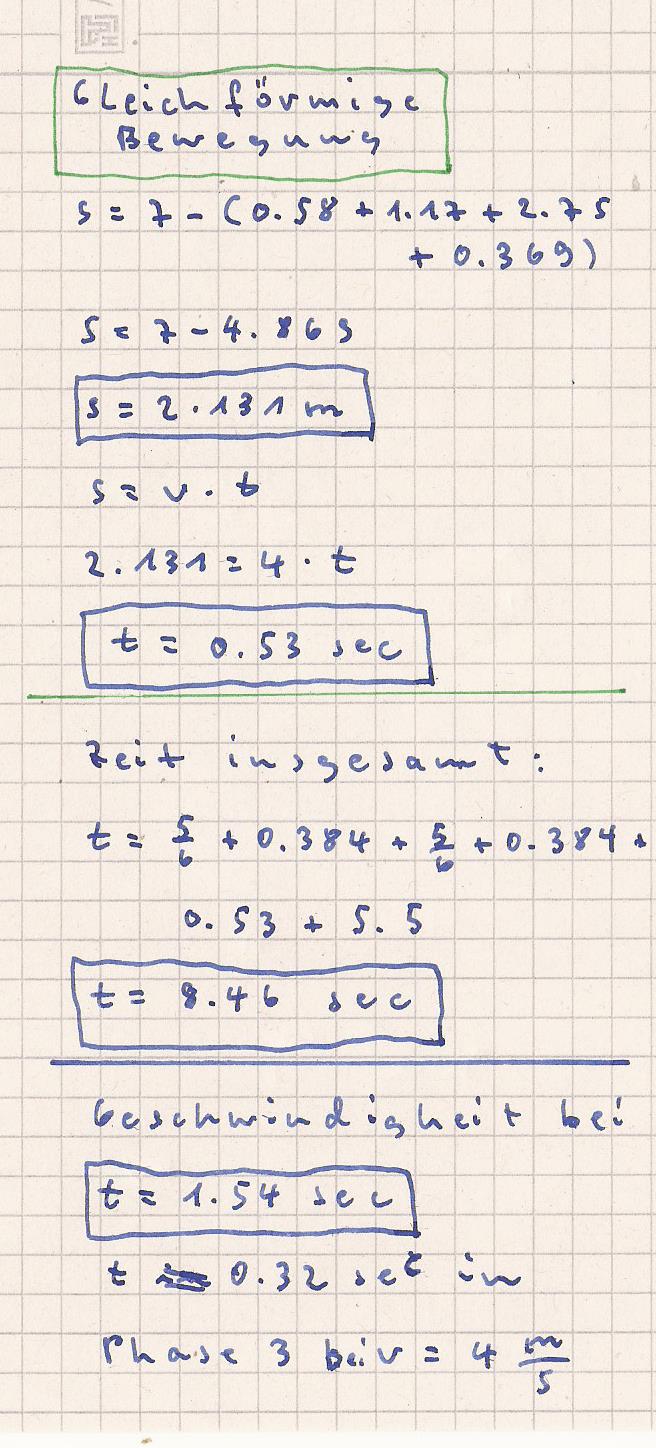 Gleichförmige
Bewegung
s = 7 - (0.58 + 1.17 + 2.75
+ 0.369)
s = 7 - 4.869
s = 2.131 m
s = v . t
2.131 = 4 . t
t = 0.53 sec
Zeit insgesamt:
t = 5/6 + 0.384 + 5/6 + 0.384 +
0.53 + 5.5
t = 8.46 sec
Geschwindigkeit bei
t = 1.54 sec
t 0.32 sec in
Phase 3 bei v = 4 m/s